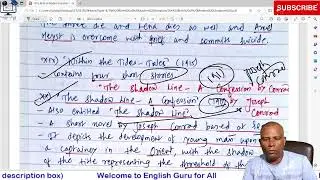 SUBSCRIBE
Heyst is overcome with grief and commits suicide.
XIV) "Within the Tides - Tales" (1915)
- contains four short stories
"The Shadow Line - A Confession by Joseph Conrad
XV) "The Shadow Line - A Confession" (1917) by Joseph Conrad
- Also entitled "The Shadow Line"
- A short novel by Joseph Conrad based at
- It depicts the development of young man upon
a captaincy in the Orient, with the shadow
of the title representing the threshold of
description box)
Welcome to English Guru for All